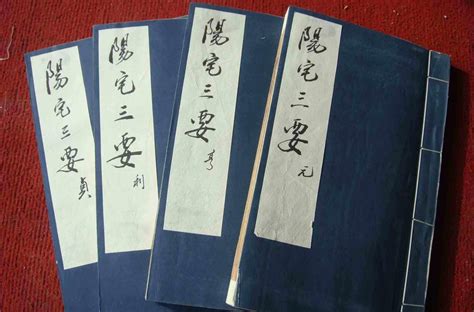 陽宅三要 元
陽宅三要 亨
陽宅三要 利
陽宅三要 貞